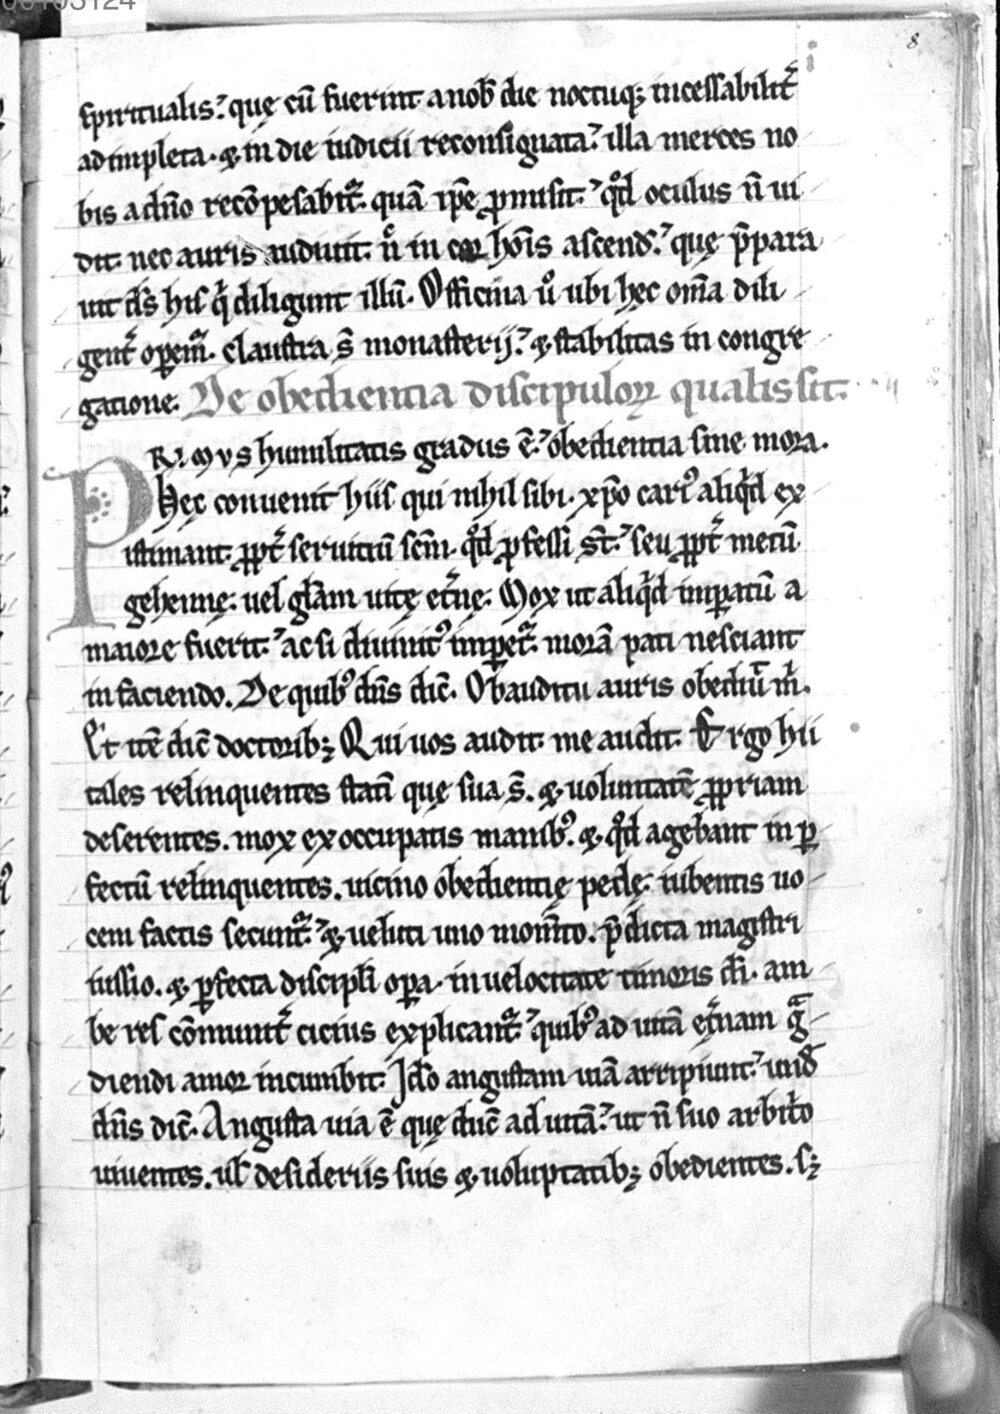 00105124
8
spiritualis. quę cū fuerint anob̄ die noctuq; incessabilit̄
adimpleta. & in die iudicii reconsignata. illa merces no
bis a dn̄o recōpensabit̄. quā ip̄e ꝓmisit. qd̄ oculus n̄ ui
dit nec auris audiuit. n̄ in cor hōis ascend̄. quę p̄para
uit ds̄ his qͥ diligunt illū. Officina ů ubi hęc om̄a dili
gent̄ oꝑem̄. claustra s̄ monasterij. & stabilitas in congre
gatione. De obedientia discipuloꝝ qualis sit.
PRIMVS humilitatis gradus ē. obedientia sine mora.
Hęc convenit hiis qui nihil sibi. xp̄o cariꝰ aliqͥd ex
istimant. ꝓpt̄ seruitiū sc̄m. qd̄ ꝓfessi st̄. seu ꝓpt̄ metū
gehennę. uel glām uitę et̄nę. Mox ut aliqͥd imꝑatū a
maiore fuerit. ac si diuinitꝰ imꝑet̄. morā pati nesciant
in faciendo. De quibꝰ dn̄s dic̄. Obauditu auris obediū m̄.
Et itē dic̄ doctorib; Qui uos audit. me audit. Ergo hii
tales relinquentes statī quę sua s̄. & uoluntatē ꝓpriam
deserentes. mox exoccupatis manibꝰ. & qd̄ agebant inꝑ
fectū relinquentes. uicino obedientię pede. iubentis uo
cem factis secunt̄. & ueluti uno mom̄to. p̄dicta magistri
iussio. & ꝑfecta discipli oꝑa. in uelocitate timoris di. am
be res cōmunit̄ cicius explicant̄. quibꝰ ad uitā et̄nam gͣ
diendi amor incumbit. Ido angustam uiā arripiunt. und̄
dn̄s dic̄. Angusta uia ē quę duc̄ ad uitā. ut n̄ suo arbit̄o
uiuentes. ul̄ desideriis suis & uoluptatib; obedientes. s;